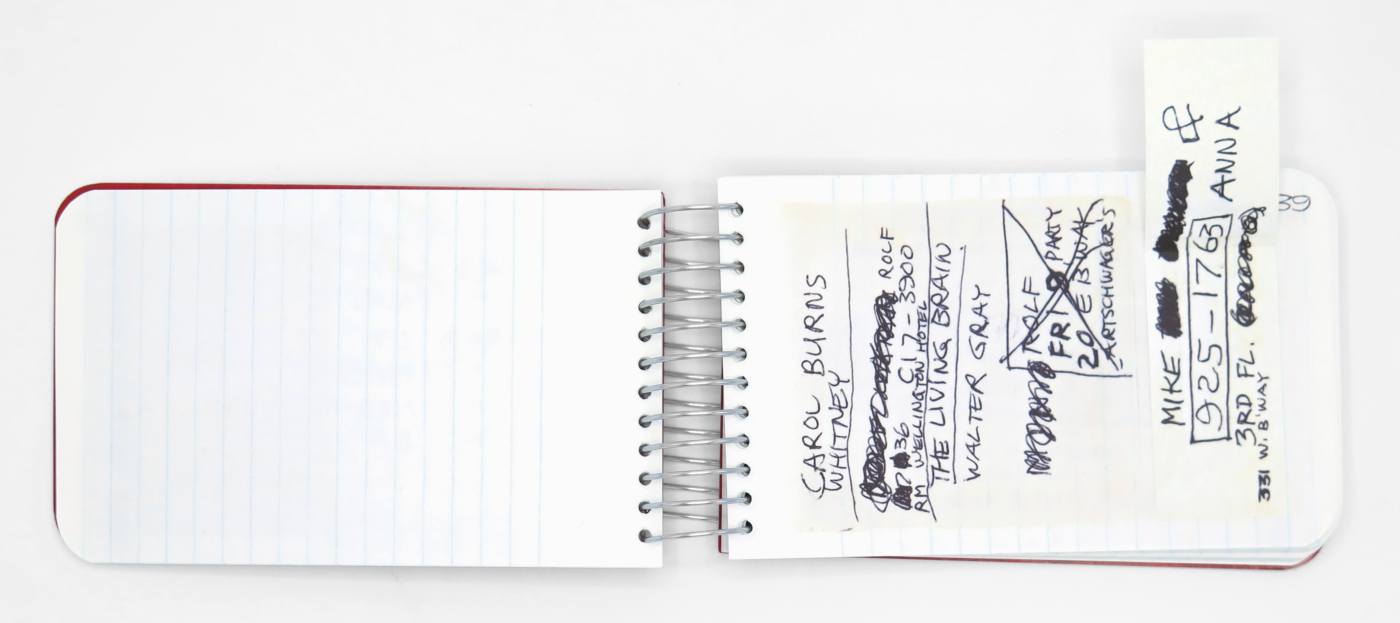 CAROL BURNS
WHITNEY
ROLF
36 CI 7-3900
RM WELLINGTON HOTEL
THE LIVING BRAIN
WALTER GRAY
ROLF
FRI PARTY
20 E B'WAY
ARTSCHWAGER'S
MIKE &
ANNA
925-1763
3RD FL.
331 W. B'WAY
39